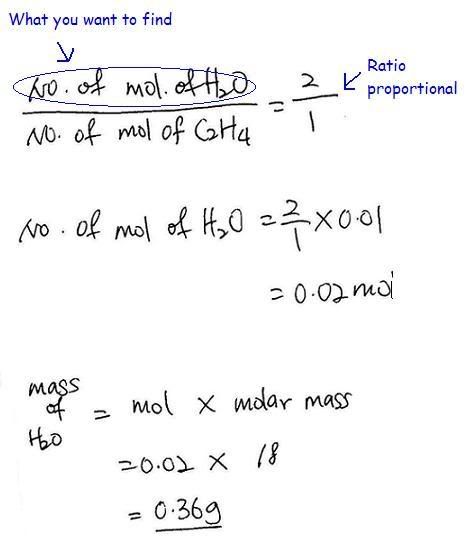 What you want to find
No. of mol. of H2O / No. of mol of C2H4 = 2/1
Ratio
proportional
No. of mol of H2O = 2/1 × 0.01
= 0.02 mol
mass of H2O = mol × molar mass
= 0.02 × 18
= 0.36g